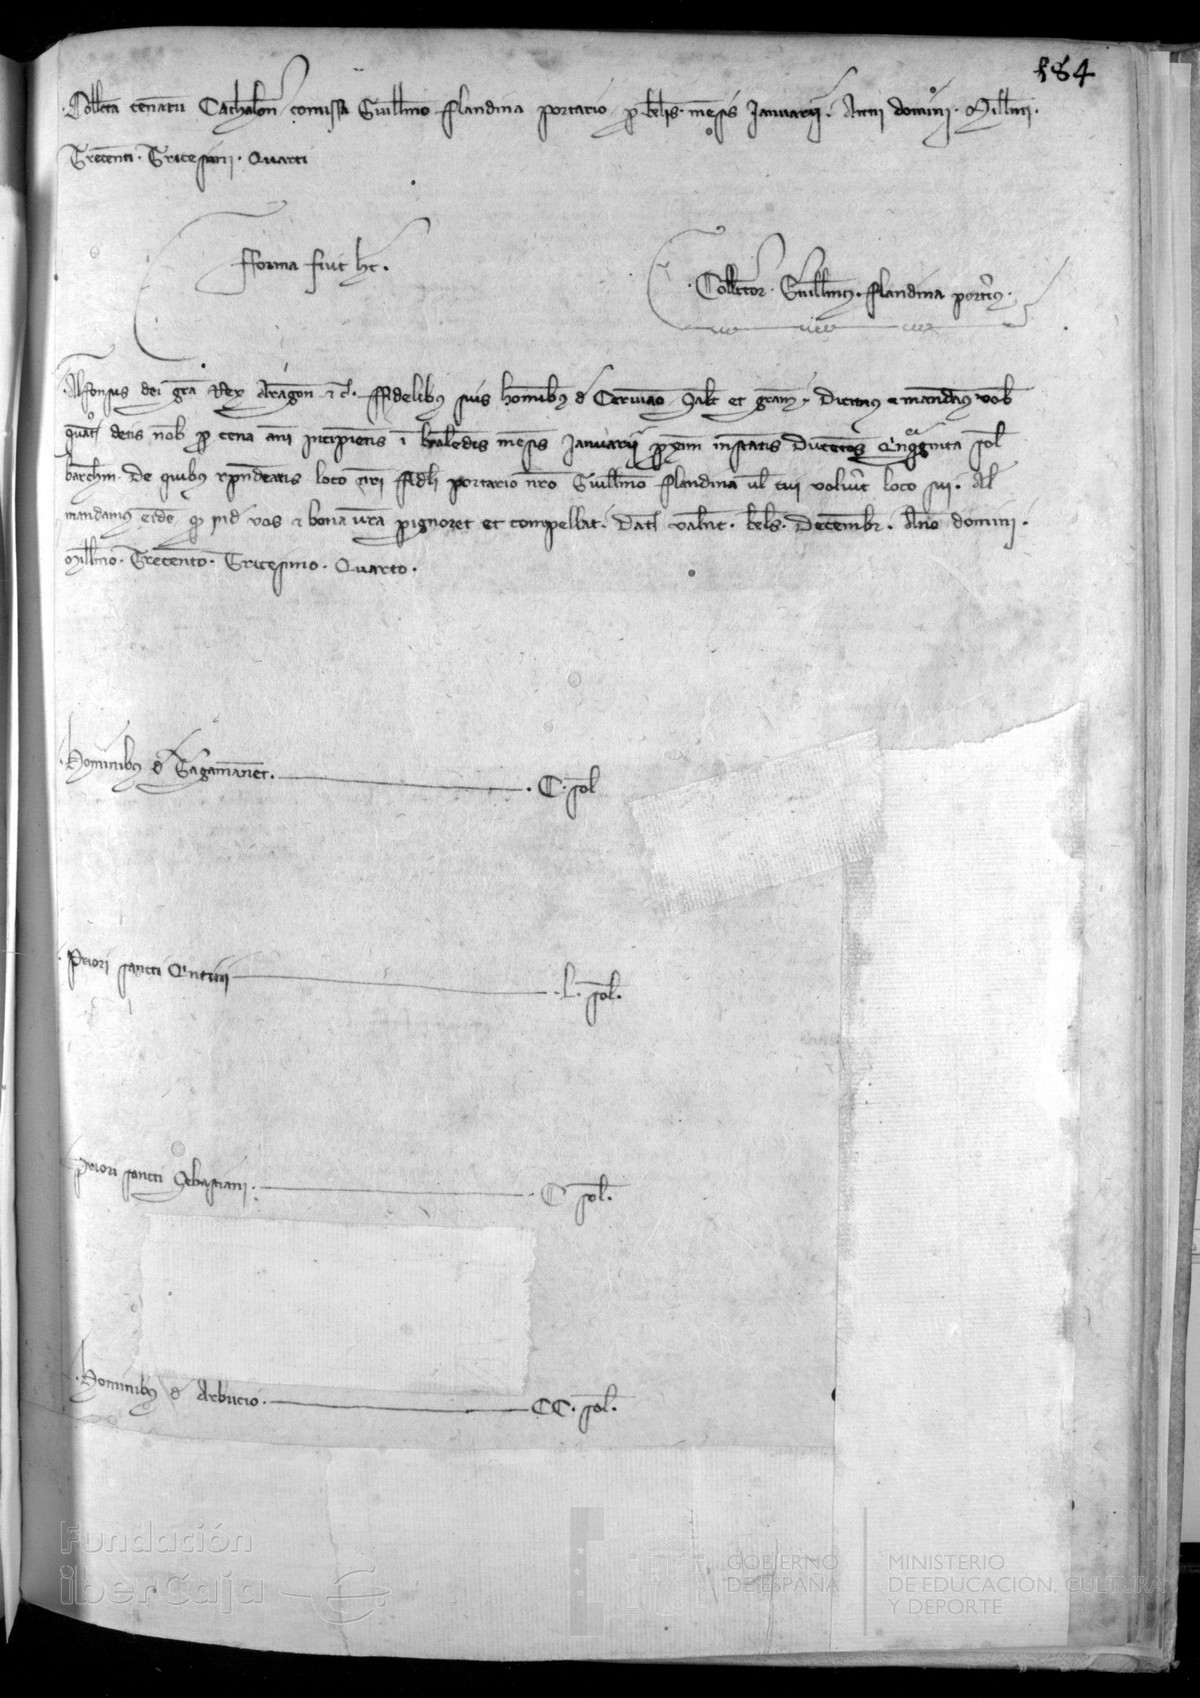 184
Collecta cenarum Cathalon comissa Guillmo Flandina portario p kls mesis Januarii Anni domini Millmi
Trecenti Tricesimi Quarti
Fforma fuit hec
Collector Guillms Flandina portius
Alfonsus dei gra Rex Aragon et c. Ffidelibus suis hominibus de Cerviano Salt et gram Dicimus et mandamus vob
quat detis nob p cena anni incipientis i kaledis mesis Januarii pxim instatis Ducetos Quqginta sol
barchn De quibus rpndeatis loco nri fideli portario nro Guillmo Flandina vl cui voluit loco sui Al
mandamus eide q inde vos et bona vra pignoret et compellat Dat Valnc kls Decembr Ano domini
Millmo Trecento Tricesimo Quarto
Hominibus de Tagamanent C sol
Priori sancti L sol
Priori sancti Sebastiani C sol
Hominibus de Arbucio CC sol
Fundación
iberCaja
GOBIERNO
DE ESPAÑA
MINISTERIO
DE EDUCACIÓN, CULTURA
Y DEPORTE